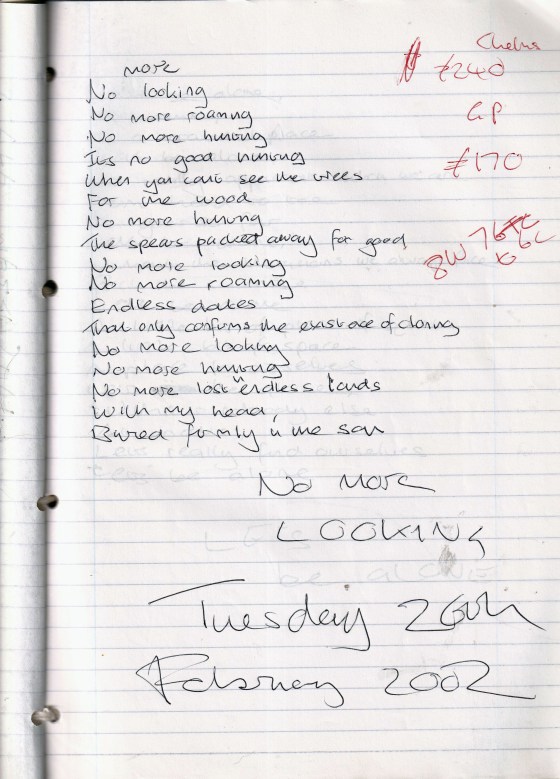 more
No looking
No more roaming
No more hunting
Its no good hunting
When you cant see the trees
For the wood
No more hunting
The spears packed away for good
No more looking
No more roaming
Endless dates
That only confirms the existance of cloning
No more looking
No more hunting
No more lost in endless lands
With my head,
Buried firmly in the san
No More
LOOKING
Tuesday 26th
February 2002
Chelns
£240
GP
£170
8W 76